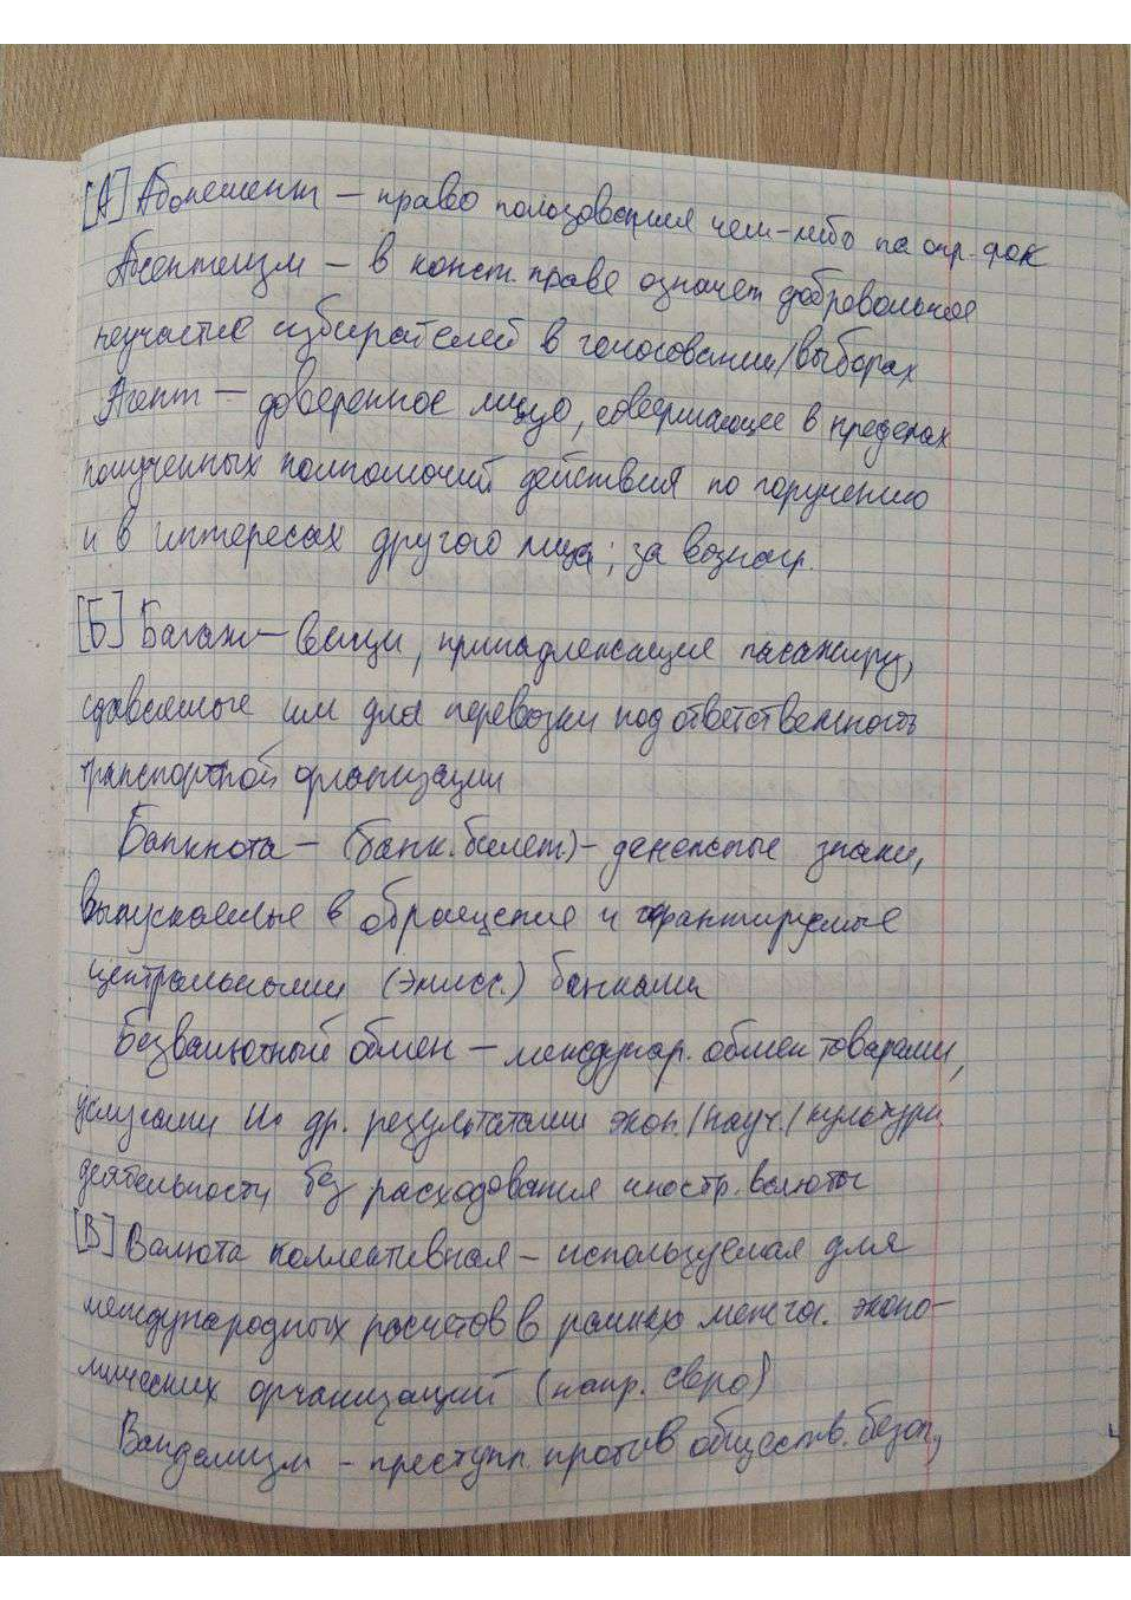 [А] Абонемент – право пользования чем-либо на опр. срок
Абсентеизм – в конст. праве означает добровольное
неучастие избирателей в голосовании/выборах
Агент – доверенное лицо, совершающее в пределах
полученных полномочий действия по поручению
и в интересах другого лица; за вознагр.
[Б] Багаж – вещи, принадлежащие пасажиру,
сдаваемые им для перевозки под ответственность
транспортной организации
Банкнота – (банк. билет) – денежные знаки,
выпускаемые в обращение и гарантируемые
центральными (эмисс.) банками
Безвалютный обмен – междунар. обмен товарами,
услугами и др. результатами экон./науч./культурн.
деятельности без расходования иностр. валюты
[В] Валюта коллективная – используемая для
международных расчетов в рамках межгос. эконо-
мических организаций (напр. евро)
Вандализм – преступл. против обществ. безоп.,